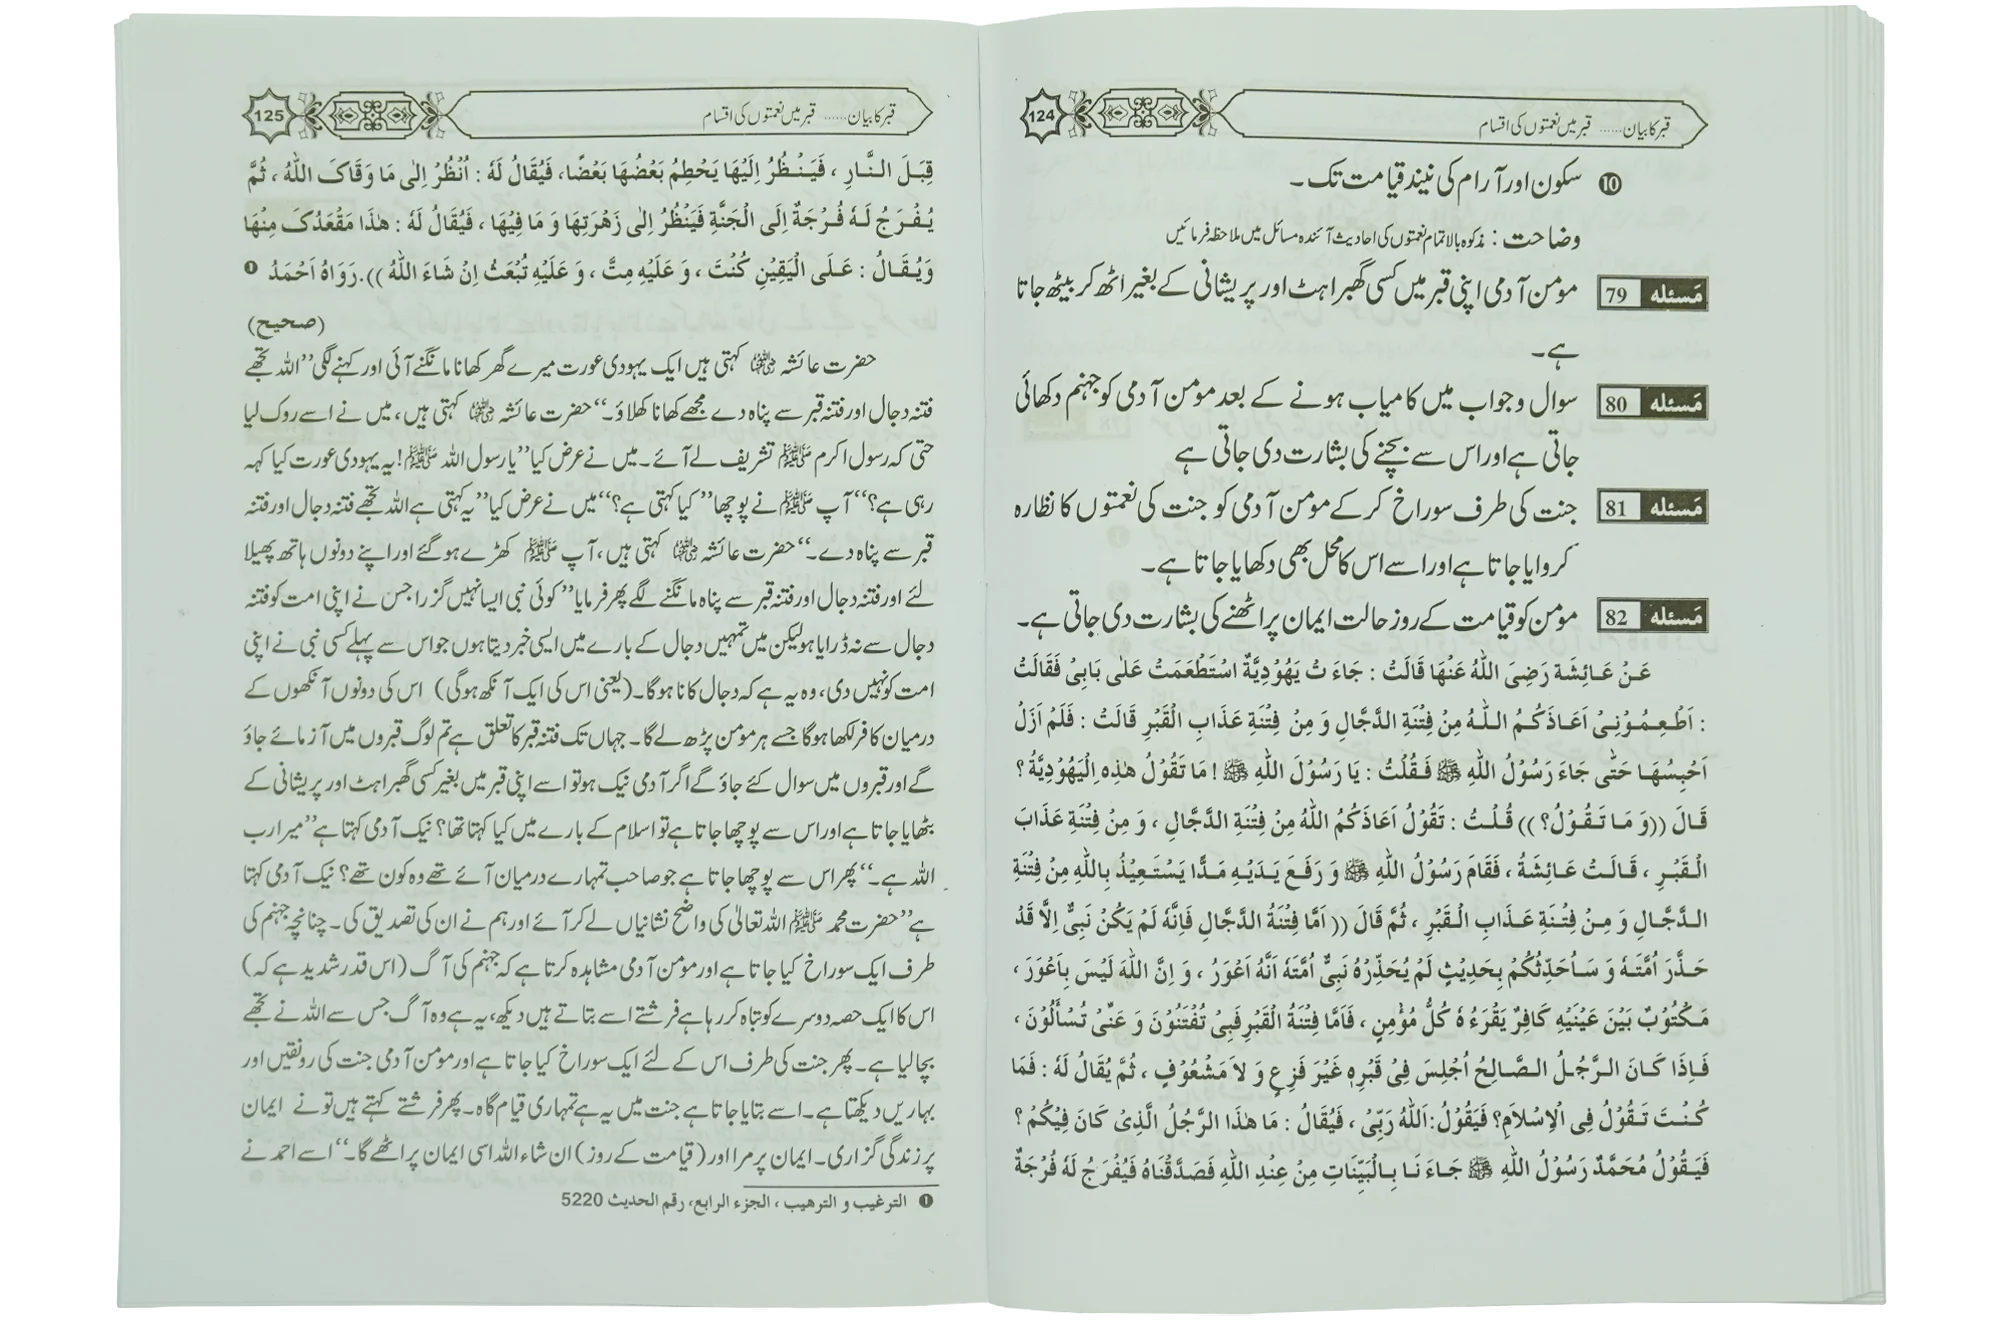 124
قبر کا بیان...... قبر میں نعمتوں کی اقسام
⑩ سکون اور آرام کی نیند قیامت تک۔
وضاحت : مذکورہ بالا تمام نعمتوں کی احادیث آئندہ مسائل میں ملاحظہ فرمائیں
مَسئله 79 مومن آدمی اپنی قبر میں کسی گھبراہٹ اور پریشانی کے بغیر اٹھ کر بیٹھ جاتا
ہے۔
مَسئله 80 سوال و جواب میں کامیاب ہونے کے بعد مومن آدمی کو جہنم دکھائی
جاتی ہے اور اس سے بچنے کی بشارت دی جاتی ہے
مَسئله 81 جنت کی طرف سوراخ کر کے مومن آدمی کو جنت کی نعمتوں کا نظارہ
کروایا جاتا ہے اور اسے اس کا محل بھی دکھایا جاتا ہے۔
مَسئله 82 مومن کو قیامت کے روز حالت ایمان پر اٹھنے کی بشارت دی جاتی ہے۔
عَنْ عَائِشَةَ رَضِيَ اللّٰهُ عَنْهَا قَالَتْ : جَاءَتْ يَهُوْدِيَّةٌ اسْتَطْعَمَتْ عَلٰى بَابِيْ فَقَالَتْ
: اَطْعِمُوْنِيْ اَعَاذَكُمُ اللّٰهُ مِنْ فِتْنَةِ الدَّجَّالِ وَ مِنْ فِتْنَةِ عَذَابِ الْقَبْرِ قَالَتْ : فَلَمْ اَزَلْ
اَحْبِسُهَا حَتّٰى جَاءَ رَسُوْلُ اللّٰهِ ﷺ فَقُلْتُ : يَا رَسُوْلَ اللّٰهِ ﷺ ! مَا تَقُوْلُ هٰذِهِ الْيَهُوْدِيَّةُ ؟
قَالَ ((وَ مَا تَقُوْلُ؟ )) قُلْتُ : تَقُوْلُ اَعَاذَكُمُ اللّٰهُ مِنْ فِتْنَةِ الدَّجَّالِ ، وَ مِنْ فِتْنَةِ عَذَابِ
الْقَبْرِ ، قَالَتْ عَائِشَةُ ، فَقَامَ رَسُوْلُ اللّٰهِ ﷺ وَ رَفَعَ يَدَيْهِ مَدًّا يَسْتَعِيْذُ بِاللّٰهِ مِنْ فِتْنَةِ
الدَّجَّالِ وَ مِنْ فِتْنَةِ عَذَابِ الْقَبْرِ ، ثُمَّ قَالَ (( اَمَّا فِتْنَةُ الدَّجَّالِ فَاِنَّهُ لَمْ يَكُنْ نَبِيٌّ اِلَّا قَدْ
حَذَّرَ اُمَّتَهُ وَ سَاُحَدِّثُكُمْ بِحَدِيْثٍ لَمْ يُحَذِّرْهُ نَبِيٌّ اُمَّتَهُ اَنَّهُ اَعْوَرُ ، وَ اِنَّ اللّٰهَ لَيْسَ بِاَعْوَرَ ،
مَكْتُوْبٌ بَيْنَ عَيْنَيْهِ كَافِرٌ يَقْرَءُهُ كُلُّ مُؤْمِنٍ ، فَاَمَّا فِتْنَةُ الْقَبْرِ فَبِيْ تُفْتَنُوْنَ وَ عَنِّيْ تُسْأَلُوْنَ ،
فَاِذَا كَانَ الرَّجُلُ الصَّالِحُ اُجْلِسَ فِيْ قَبْرِهِ غَيْرَ فَزِعٍ وَ لَا مَشْعُوْفٍ ، ثُمَّ يُقَالُ لَهُ : فَمَا
كُنْتَ تَقُوْلُ فِي الْاِسْلَامِ؟ فَيَقُوْلُ: اَللّٰهُ رَبِّيْ ، فَيُقَالُ : مَا هٰذَا الرَّجُلُ الَّذِيْ كَانَ فِيْكُمْ ؟
فَيَقُوْلُ مُحَمَّدٌ رَسُوْلُ اللّٰهِ ﷺ جَاءَنَا بِالْبَيِّنَاتِ مِنْ عِنْدِ اللّٰهِ فَصَدَّقْنَاهُ فَيُفْرَجُ لَهُ فُرْجَةٌ
125
قبر کا بیان...... قبر میں نعمتوں کی اقسام
قِبَلَ النَّارِ ، فَيَنْظُرُ اِلَيْهَا يَحْطِمُ بَعْضُهَا بَعْضًا، فَيُقَالُ لَهُ : اُنْظُرْ اِلٰى مَا وَقَاكَ اللّٰهُ ، ثُمَّ
يُفْرَجُ لَهُ فُرْجَةٌ اِلَى الْجَنَّةِ فَيَنْظُرُ اِلٰى زَهْرَتِهَا وَ مَا فِيْهَا ، فَيُقَالُ لَهُ : هٰذَا مَقْعَدُكَ مِنْهَا
وَيُقَالُ : عَلَى الْيَقِيْنِ كُنْتَ ، وَ عَلَيْهِ مِتَّ ، وَ عَلَيْهِ تُبْعَثُ اِنْ شَاءَ اللّٰهُ )).رَوَاهُ اَحْمَدُ ❶
(صحیح)
حضرت عائشہ رضی اللہ عنہا کہتی ہیں ایک یہودی عورت میرے گھر کھانا مانگنے آئی اور کہنے لگی ’’اللہ تجھے
فتنہ دجال اور فتنہ قبر سے پناہ دے مجھے کھانا کھلاؤ۔‘‘ حضرت عائشہ رضی اللہ عنہا کہتی ہیں، میں نے اسے روک لیا
حتی کہ رسول اکرم ﷺ تشریف لے آئے۔ میں نے عرض کیا ’’یا رسول اللہ ﷺ! یہ یہودی عورت کیا کہہ
رہی ہے؟‘‘ آپ ﷺ نے پوچھا ’’کیا کہتی ہے؟‘‘ میں نے عرض کیا ’’یہ کہتی ہے اللہ تجھے فتنہ دجال اور فتنہ
قبر سے پناہ دے۔‘‘ حضرت عائشہ رضی اللہ عنہا کہتی ہیں، آپ ﷺ کھڑے ہو گئے اور اپنے دونوں ہاتھ پھیلا
لئے اور فتنہ دجال اور فتنہ قبر سے پناہ مانگنے لگے پھر فرمایا ’’کوئی نبی ایسا نہیں گزرا جس نے اپنی امت کو فتنہ
دجال سے نہ ڈرایا ہو لیکن میں تمہیں دجال کے بارے میں ایسی خبر دیتا ہوں جو اس سے پہلے کسی نبی نے اپنی
امت کو نہیں دی، وہ یہ ہے کہ دجال کانا ہوگا۔ (یعنی اس کی ایک آنکھ ہوگی) اس کی دونوں آنکھوں کے
درمیان کافر لکھا ہوگا جسے ہر مومن پڑھ لے گا۔ جہاں تک فتنہ قبر کا تعلق ہے تم لوگ قبروں میں آزمائے جاؤ
گے اور قبروں میں سوال کئے جاؤ گے اگر آدمی نیک ہو تو اسے اپنی قبر میں بغیر کسی گھبراہٹ اور پریشانی کے
بٹھایا جاتا ہے اور اس سے پوچھا جاتا ہے تو اسلام کے بارے میں کیا کہتا تھا؟ نیک آدمی کہتا ہے ’’میرا رب
اللہ ہے۔‘‘ پھر اس سے پوچھا جاتا ہے جو صاحب تمہارے درمیان آئے تھے وہ کون تھے؟ نیک آدمی کہتا
ہے ’’حضرت محمد ﷺ اللہ تعالیٰ کی واضح نشانیاں لے کر آئے اور ہم نے ان کی تصدیق کی۔ چنانچہ جہنم کی
طرف ایک سوراخ کیا جاتا ہے اور مومن آدمی مشاہدہ کرتا ہے کہ جہنم کی آگ (اس قدر شدید ہے کہ)
اس کا ایک حصہ دوسرے کو تباہ کر رہا ہے فرشتے اسے بتاتے ہیں دیکھ، یہ ہے وہ آگ جس سے اللہ نے تجھے
بچا لیا ہے۔ پھر جنت کی طرف اس کے لئے ایک سوراخ کیا جاتا ہے اور مومن آدمی جنت کی رونقیں اور
بہاریں دیکھتا ہے۔ اسے بتایا جاتا ہے جنت میں یہ ہے تمہاری قیام گاہ۔ پھر فرشتے کہتے ہیں تو نے ایمان
پر زندگی گزاری۔ ایمان پر مرا اور (قیامت کے روز) ان شاء اللہ اسی ایمان پر اٹھے گا۔‘‘ اسے احمد نے
❶ الترغيب و الترهيب ، الجزء الرابع، رقم الحديث 5220